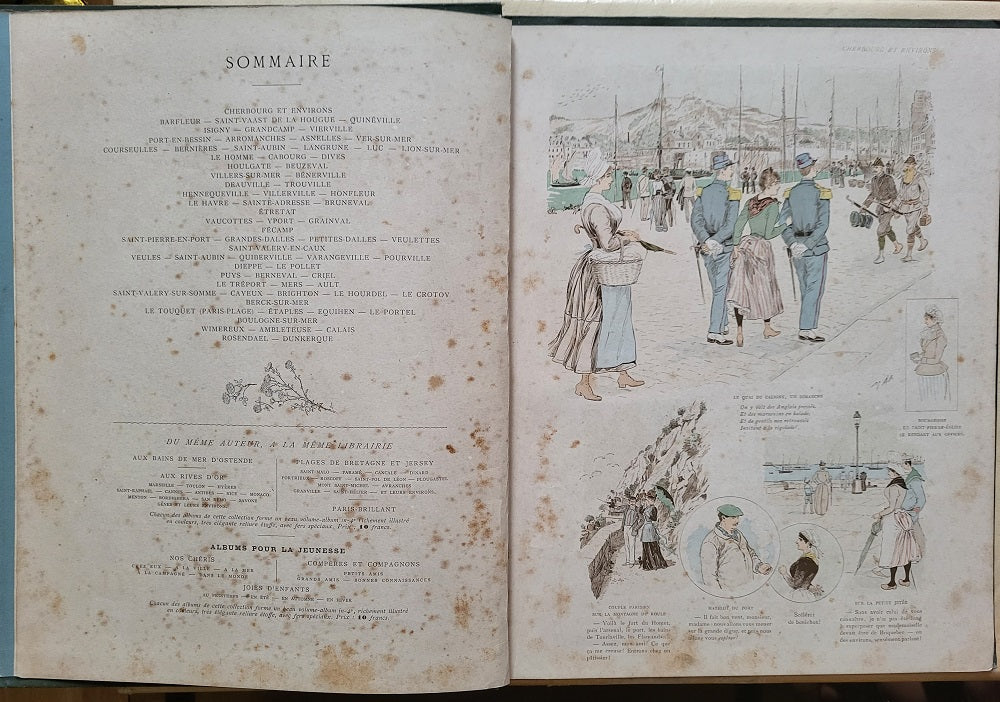 SOMMAIRE
CHERBOURG ET ENVIRONS
BARFLEUR — SAINT-VAAST DE LA HOUGUE — QUINÉVILLE
ISIGNY — GRANDCAMP — VIERVILLE
PORT-EN-BESSIN — ARROMANCHES — ASNELLES — VER-SUR-MER
COURSEULLES — BERNIÈRES — SAINT-AUBIN — LANGRUNE — LUC — LION-SUR-MER
LE HOMME — CABOURG — DIVES
HOULGATE — BEUZEVAL
VILLERS-SUR-MER — BÉNERVILLE
DEAUVILLE — TROUVILLE
HENNEQUEVILLE — VILLERVILLE — HONFLEUR
LE HAVRE — SAINTE-ADRESSE — BRUNEVAL
ÉTRETAT
VAUCOTTES — YPORT — GRAINVAL
FÉCAMP
SAINT-PIERRE-EN-PORT — GRANDES-DALLES — PETITES-DALLES — VEULETTES
SAINT-VALERY-EN-CAUX
VEULES — SAINT-AUBIN — QUIBERVILLE — VARANGEVILLE — POURVILLE
DIEPPE — LE POLLET
PUYS — BERNEVAL — CRIEL
LE TRÉPORT — MERS — AULT
SAINT-VALERY-SUR-SOMME — CAYEUX — BRIGHTON — LE HOURDEL — LE CROTOY
BERCK-SUR-MER
LE TOUQUET (PARIS-PLAGE) — ÉTAPLES — EQUIHEN — LE PORTEL
BOULOGNE-SUR-MER
WIMEREUX — AMBLETEUSE — CALAIS
ROSENDAEL — DUNKERQUE
DU MÊME AUTEUR, A LA MÊME LIBRAIRIE
AUX BAINS DE MER D'OSTENDE
AUX RIVES D'OR
MARSEILLE — TOULON — HYÈRES
SAINT-RAPHAEL — CANNES — ANTIBES — NICE — MONACO
MENTON — BORDIGHERA — SAN REMO — SAVONE
GÊNES ET LEURS ENVIRONS.
PLAGES DE BRETAGNE ET JERSEY
SAINT-MALO — PARAMÉ — CANCALE — DINARD
PORTRIEUX — ROSCOFF — SAINT-POL DE LÉON — PLOUGASTEL
MONT SAINT-MICHEL — AVRANCHES
GRANVILLE — SAINT-HÉLIER — ET LEURS ENVIRONS.
PARIS-BRILLANT
Chacun des albums de cette collection forme un beau volume-album in-4°, richement illustré
en couleurs, très élégante reliure étoffe, avec fers spéciaux. Prix: 10 francs.
ALBUMS POUR LA JEUNESSE
NOS CHÉRIS
CHEZ EUX — A LA VILLE — A LA MER
A LA CAMPAGNE — DANS LE MONDE
COMPÈRES ET COMPAGNONS
PETITS AMIS
GRANDS AMIS — BONNES CONNAISSANCES
JOIES D'ENFANTS
AU PRINTEMPS — EN ÉTÉ — EN AUTOMNE — EN HIVER
Chacun des albums de cette collection forme un beau volume-album in-4°, richement illustré
en couleurs, très élégante reliure étoffe, avec fers spéciaux. Prix : 10 francs.
CHERBOURG ET ENVIRONS
LE QUAI DU CALIGNY, UN DIMANCHE
On y voit des Anglais pressés,
Et des marsouins en balade,
Et de gentils nez retroussés
Invitant à la rigolade!
BOURGEOISE
DE SAINT-PIERRE-ÉGLISE
SE RENDANT AUX OFFICES.
COUPLE PARISIEN
SUR LA MONTAGNE DU ROULE
— Voilà le fort du Homet,
puis l'arsenal, le port, les bains
de Tourlaville, les Flamands...
— Assez, mon ami! Ce que
ça me creuse! Entrons chez un
pâtissier!
MATELOT DU PORT
— Il fait bon vent, monsieur,
madame: nous allons vous mener
sur la grande digue, et puis nous
allons vous
Sollier
de bonichon!
SUR LA PETITE JETÉE
— Sans avoir celui de vous
connaître, je n'ai pas été long
à supérposer que mademoiselle
devait être de Briquebec — ou
des environs, sensément parlant!